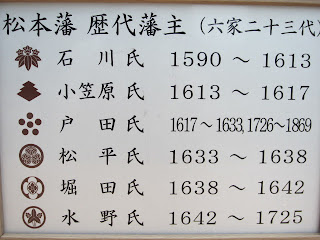 松本藩 歴代藩主（六家二十三代）
石川氏 1590 ～ 1613
小笠原氏 1613 ～ 1617
戸田氏 1617～1633,1726～1869
松平氏 1633 ～ 1638
堀田氏 1638 ～ 1642
水野氏 1642 ～ 1725